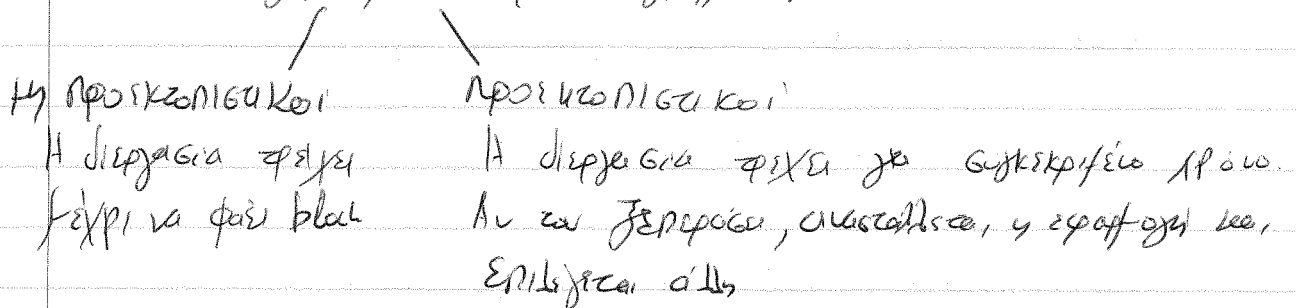 Μη προεκτοπιστικοί
Η διεργασία τρέχει
μέχρι να φάει block
Προεκτοπιστικοί
Η διεργασία τρέχει για συγκεκριμένο χρόνο.
Αν τον ξεπεράσει, αναστέλλεται η εφαρμογή και
επιλέγεται άλλη